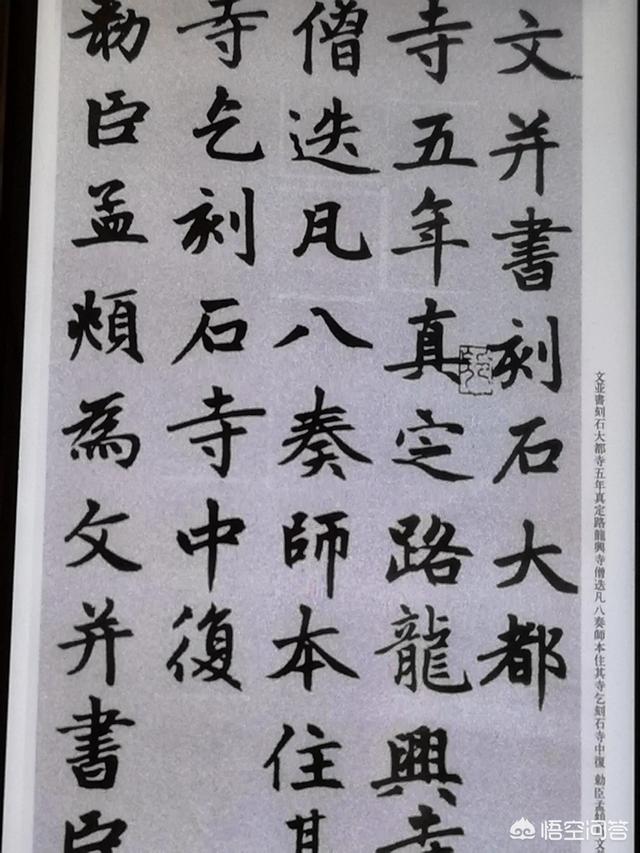 文并書刻石大都
寺五年真定路龍興寺
僧迭凡八奏師本住其
寺乞刻石寺中復
勅臣孟頫為文并書臣
文並書刻石大都寺五年真定路龍興寺僧迭凡八奏師本住其寺乞刻石寺中復 勅臣孟頫為文
悟空问答